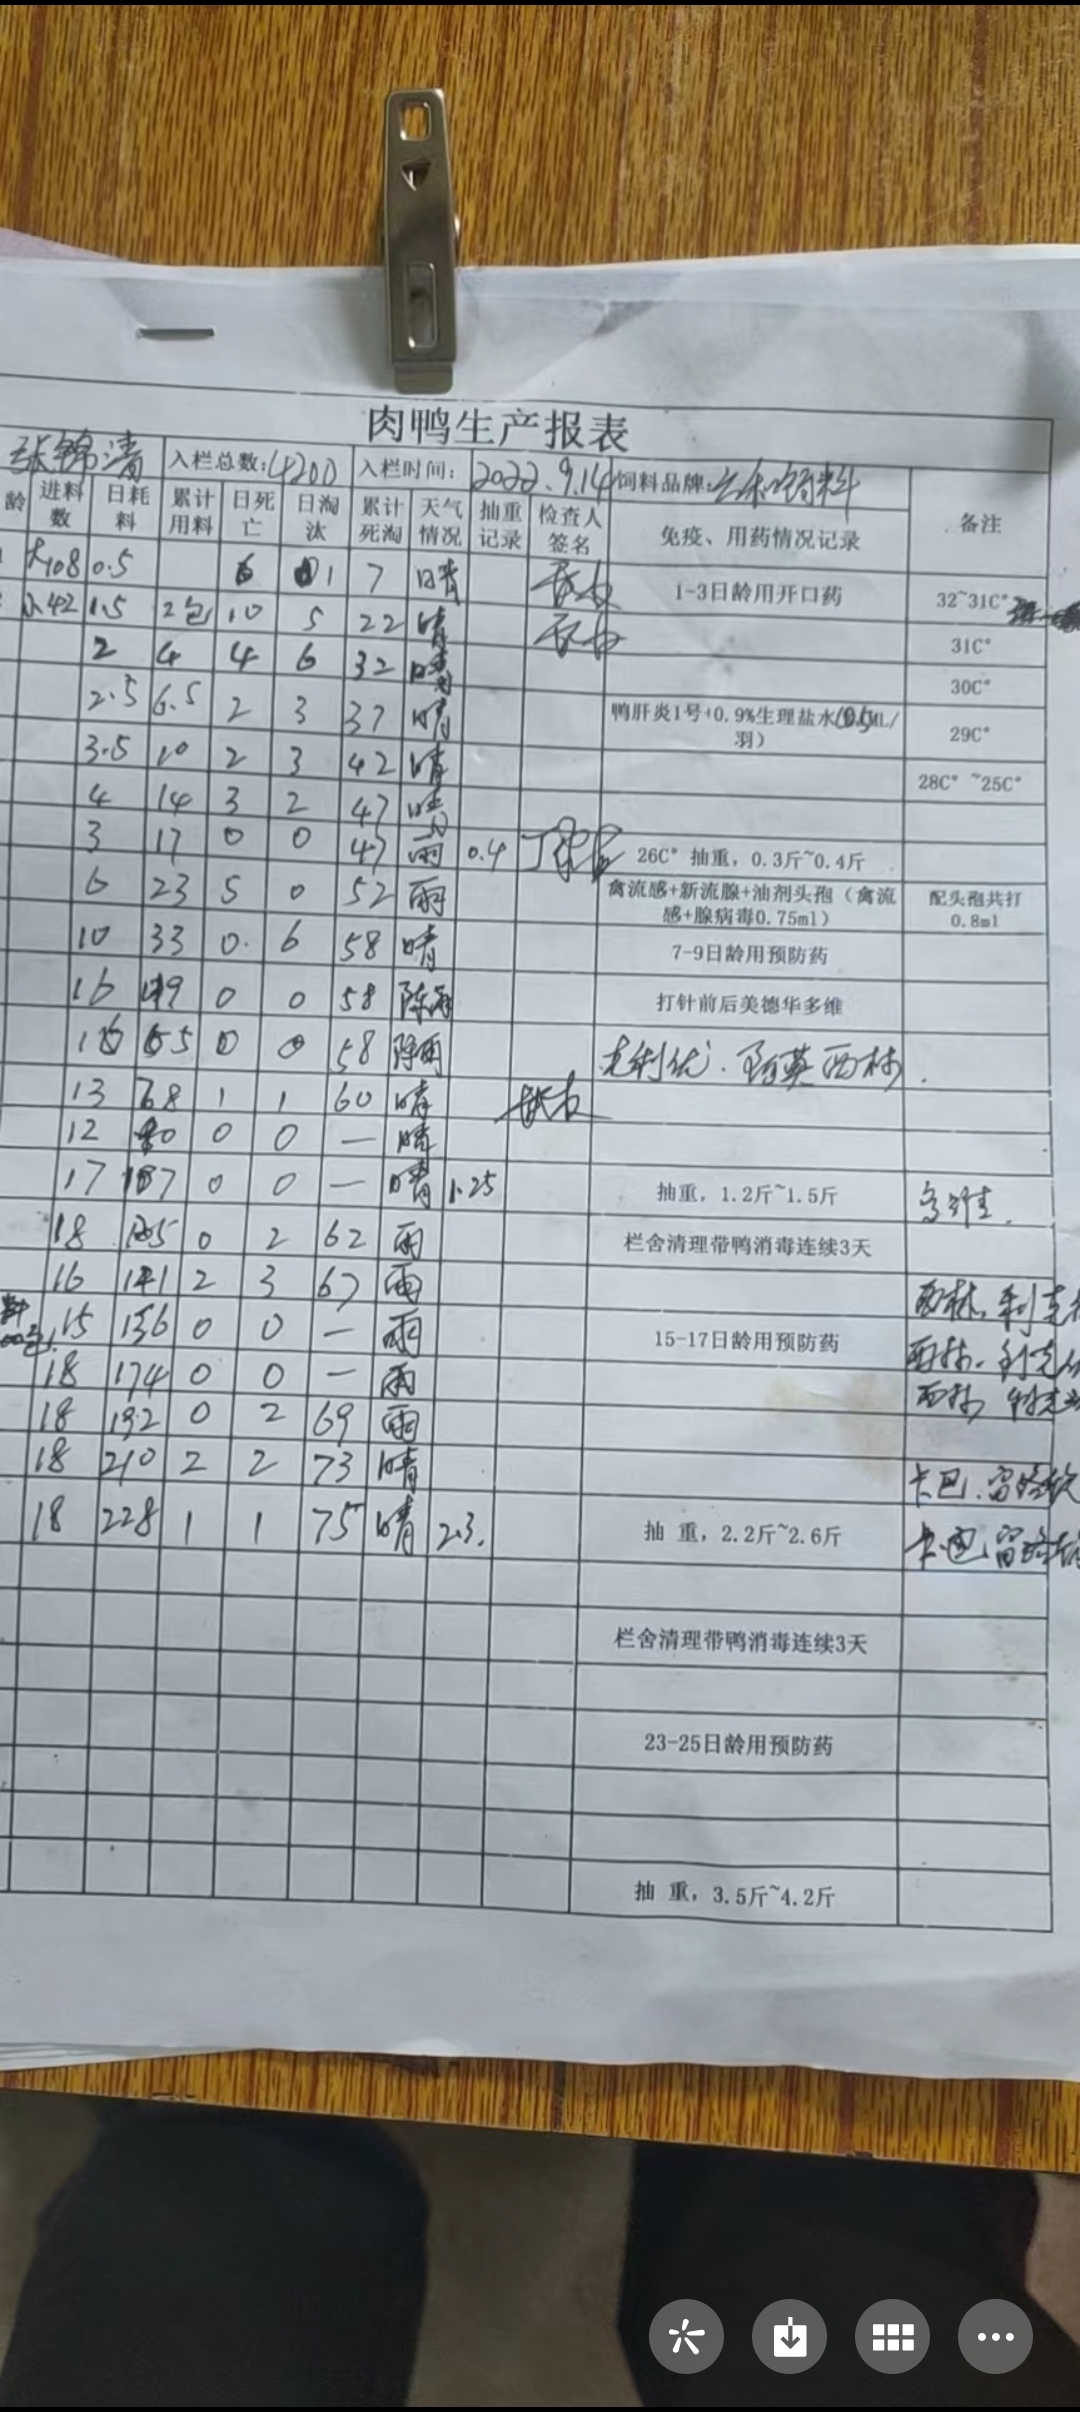 肉鸭生产报表
张锦清 入栏总数:4200 入栏时间: 2022.9.14 饲料品牌:六和饲料
龄 进料数 日耗料 累计用料 日死亡 日淘汰 累计死淘 天气情况 抽重记录 检查人签名 免疫、用药情况记录 备注
大108 0.5 6 1 7 晴 1-3日龄用开口药 32~31C°
小42 1.5 2包 10 5 22 晴 31C°
2 4 4 6 32 晴 30C°
2.5 6.5 2 3 37 晴 鸭肝炎1号+0.9%生理盐水(0.5ML/羽) 29C°
3.5 10 2 3 42 晴 28C° ~25C°
4 14 3 2 47 晴
3 17 0 0 47 雨 0.4 26C° 抽重，0.3斤~0.4斤
6 23 5 0 52 雨 禽流感+新流腺+油剂头孢（禽流感+腺病毒0.75ml） 配头孢共打0.8ml
10 33 0. 6 58 晴 7-9日龄用预防药
16 49 0 0 58 打针前后美德华多维
16 65 0 0 58 西林.
13 78 1 1 60 晴
12 90 0 0 — 晴
17 107 0 0 — 晴 1.25 抽重，1.2斤~1.5斤
18 125 0 2 62 雨 栏舍清理带鸭消毒连续3天
16 141 2 3 67 雨 西林、利克
15 156 0 0 — 雨 15-17日龄用预防药 西林、利克
18 174 0 0 — 雨 西林 利克
18 192 0 2 69 雨
18 210 2 2 73 晴 卡巴.
18 228 1 1 75 晴 2.3. 抽 重，2.2斤~2.6斤 卡巴
栏舍清理带鸭消毒连续3天
23-25日龄用预防药
抽 重，3.5斤~4.2斤